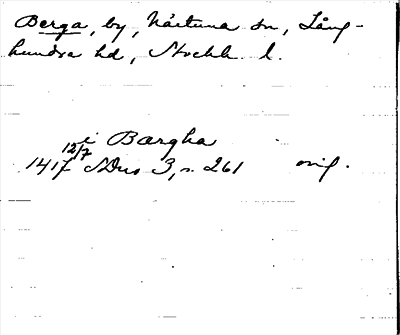 Berga, by, Närtuna sn, Lång-
hundra hd, Stockh. l.
i Bargha
1417 12/7 SDns 3, s. 261 orig.